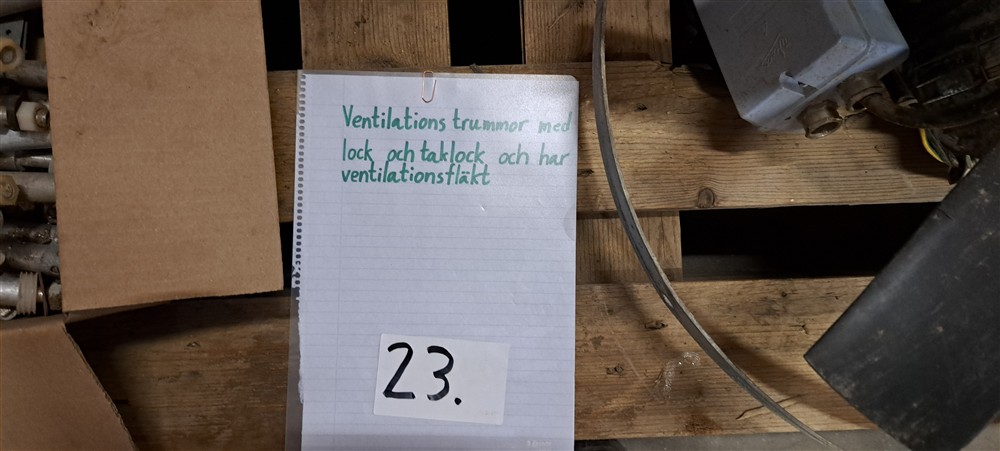 Ventilations trummor med
lock och taklock och har
ventilationsfläkt
23.